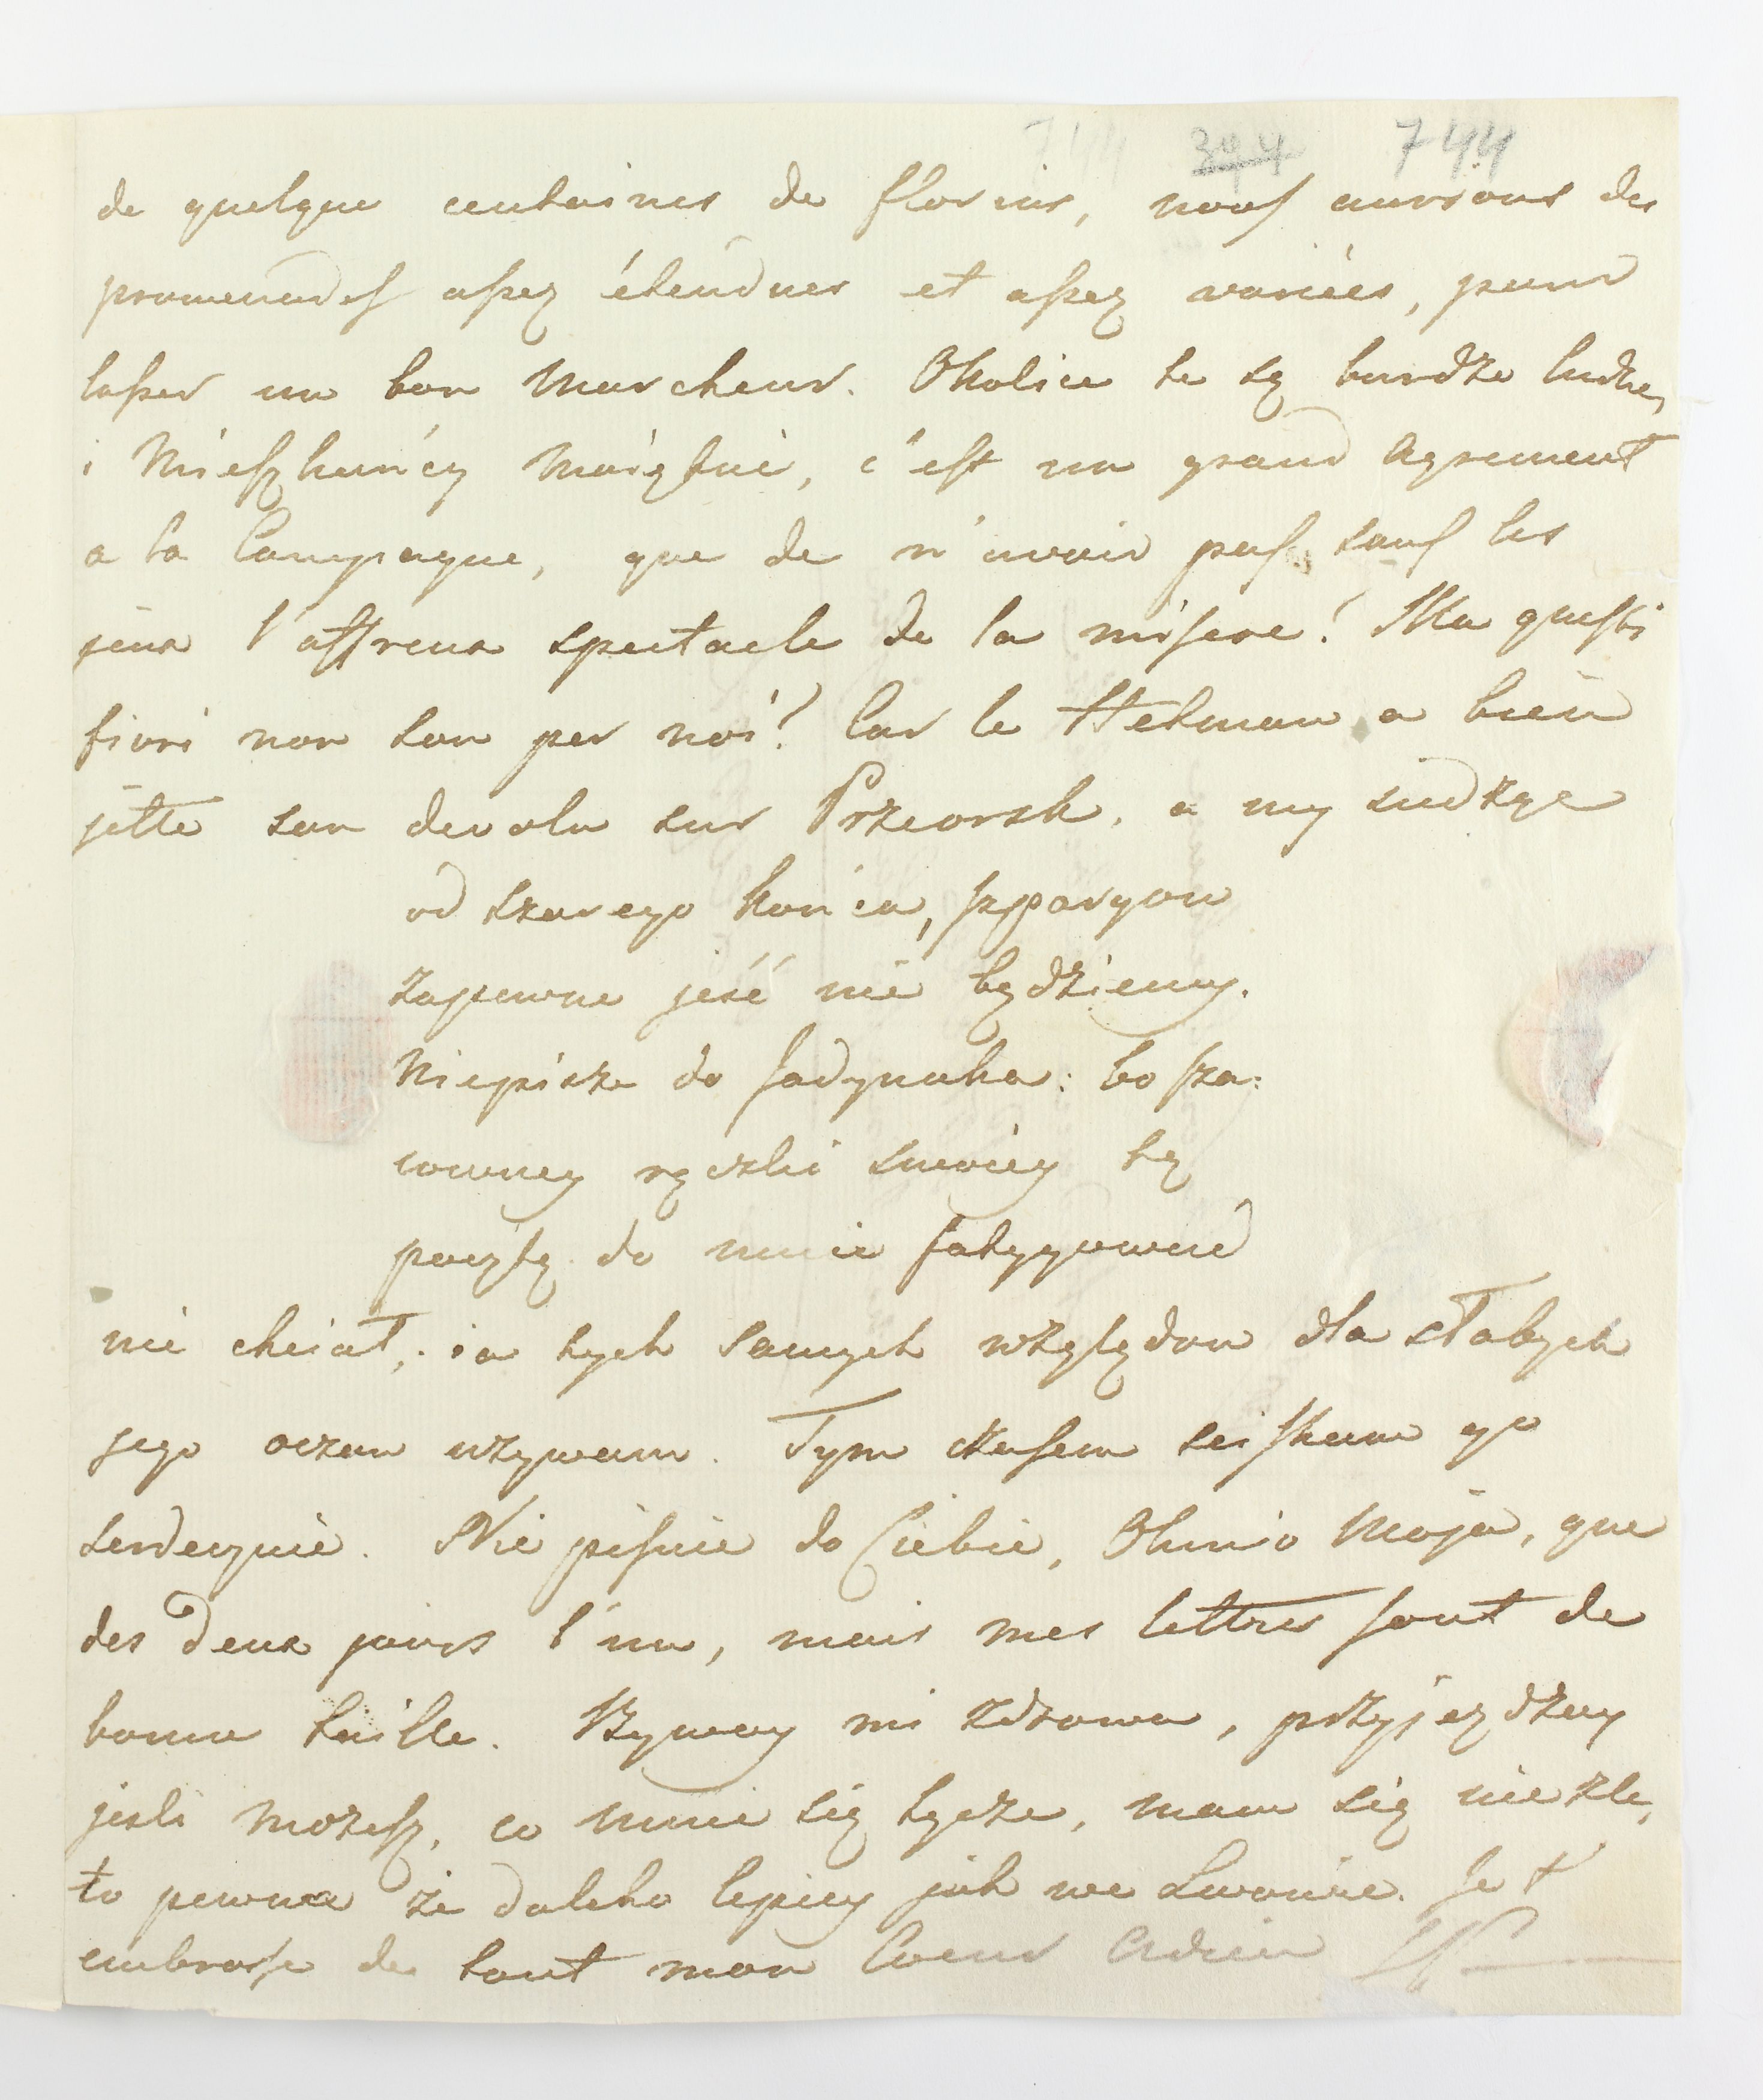 744 394 744
de quelque centaines de florins, nous aurions des
promenades assez étendues et assez variées, pour
lasser un bon Marcheur. Okolice te są bardzo ludne,
i Mieszkańcy Maiętni, c'est un grand Agrement
a la Campagne, que de n'avoir pas sous les
yeux l'affreux spectacle de la misere! Ma questi
fiori non son per noi! Car le Hetman a bien
jetté son devolu sur Przeorsk, a my siedząc
od szarego końca, szparagow
zapewne jeść nie będziemy.
Niepisze do Jadynaka: bo sza:
cowney rączki swoiey tą
pocztą do mnie fatygować
nie chciał, ia tych samych względow dla słabych
jego oczow używam. Tym czasem sciskam go
serdecznie. Nie pisuie do Ciebie, Oluniо Moja, que
des deux jours l'un, mais mes lettres sont de
bonne taille. Byway mi zdrowa, przyjezdżay
jesli możesz, co mnie się tycze, mam się nieźle,
to pewna że daleko lepiey jak we Lwowie. Je t
embrasse de tout mon Coeur Adieu